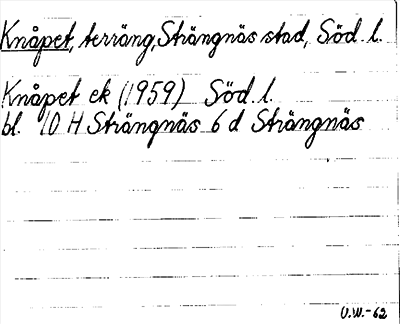 Knåpet, terräng, Strängnäs stad, Söd. l.
Knåpet ek (1959) Söd. l.
bl. 10 H Strängnäs 6 d Strängnäs
U.W.-62